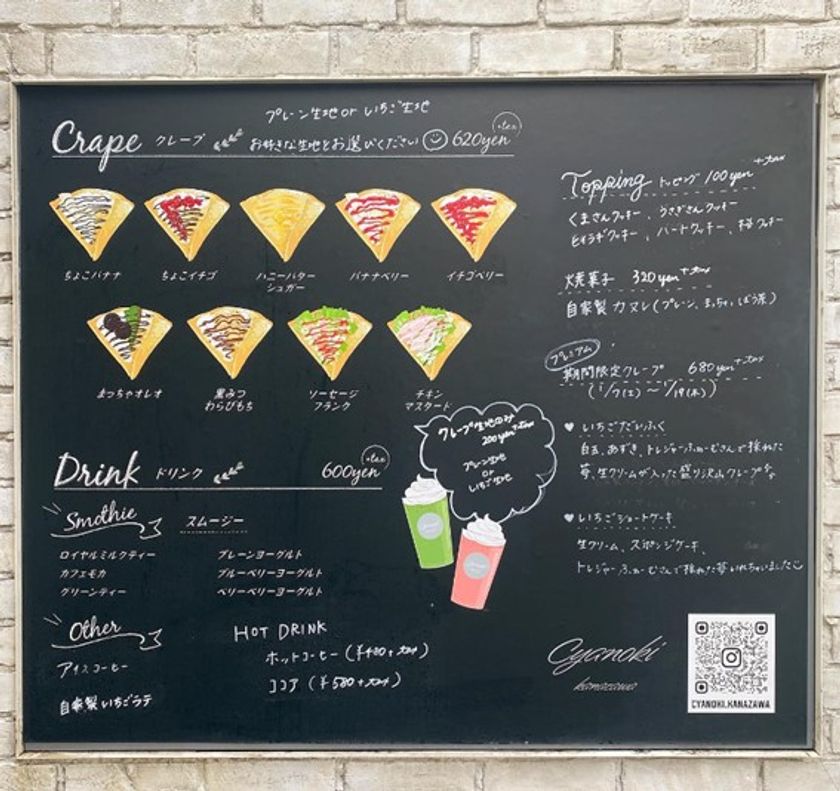 プレーン生地 or いちご生地
Crape クレープ お好きな生地をお選びください 620yen +tax
ちょこバナナ ちょこイチゴ ハニーバターシュガー バナナベリー イチゴベリー
まっちゃオレオ 黒みつわらびもち ソーセージフランク チキンマスタード
クレープ生地のみ
200yen+tax
プレーン生地
or
いちご生地
Drink ドリンク 600yen +tax
Smothie スムージー
ロイヤルミルクティー プレーンヨーグルト
カフェモカ ブルーベリーヨーグルト
グリーンティー ベリーベリーヨーグルト
Other
アイスコーヒー
自家製いちごラテ
HOT DRINK
ホットコーヒー (¥480+tax)
ココア (¥580+tax)
Topping トッピング 100yen +tax
くまさんクッキー、うさぎさんクッキー
ヒイラギクッキー、ハートクッキー、桜クッキー
焼菓子 320yen+tax
自家製カヌレ(プレーン、まっちゃ、ほうじ茶)
プレミアム
期間限定クレープ 680yen+tax
♥ いちごだいふく
白玉、あずき、トレジャーふぁーむさんで採れた
苺、生クリームが入った盛り沢山クレープ
♥ いちごショートケーキ
生クリーム、スポンジケーキ、
トレジャーふぁーむさんで採れた苺いれちゃいました
Cyanoki
kanazawa
CYANOKI.KANAZAWA